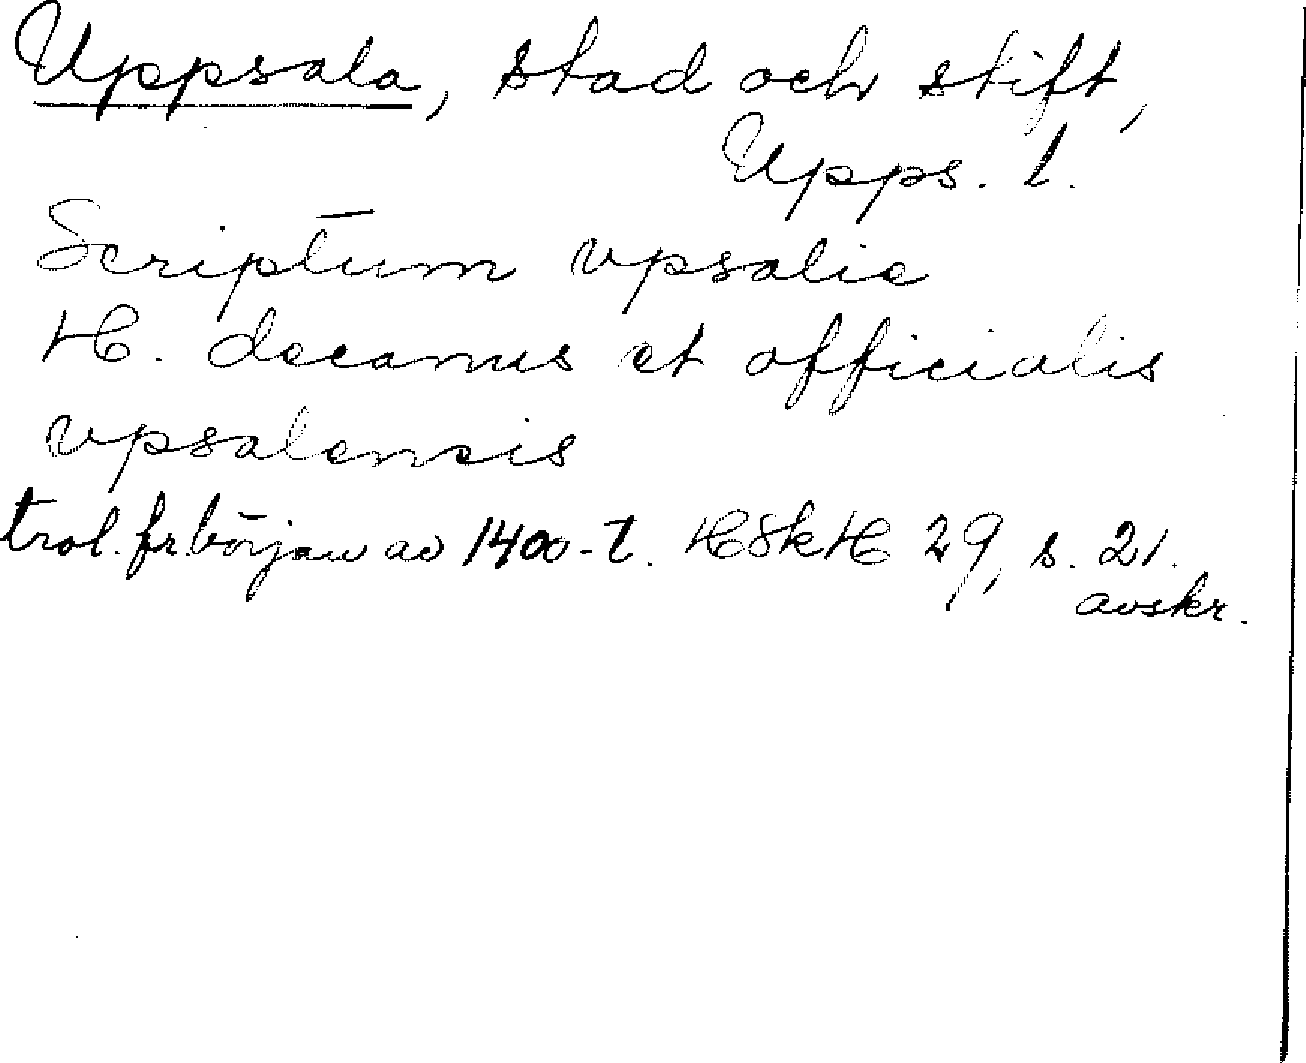 Uppsala, stad och stift,
Upps. l.
Scriptum vpsalie
H. decanus et officialis
vpsalensis
trol. fr. början av 1400-t. HSkH 29, s. 21.
avskr.